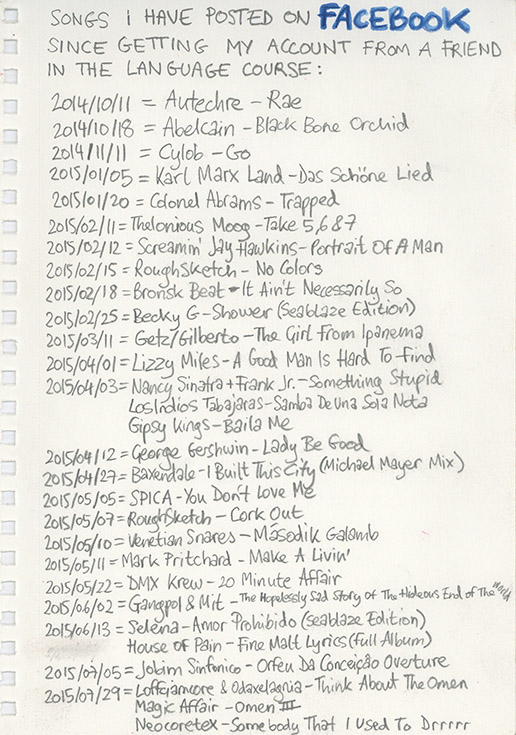 SONGS I HAVE POSTED ON FACEBOOK
SINCE GETTING MY ACCOUNT FROM A FRIEND
IN THE LANGUAGE COURSE:
2014/10/11 = Autechre - Rae
2014/10/18 = Abelcain - Black Bone Orchid
2014/11/11 = Cylob - Go
2015/01/05 = Karl Marx Land - Das Schöne Lied
2015/01/20 = Colonel Abrams - Trapped
2015/02/11 = Thelonious Moog - Take 5,6&7
2015/02/12 = Screamin' Jay Hawkins - Portrait Of A Man
2015/02/15 = RoughSketch - No Colors
2015/02/18 = Bronsk Beat - It Ain't Necessarily So
2015/02/25 = Becky G - Shower (Seablaze Edition)
2015/03/11 = Getz/Gilberto - The Girl From Ipanema
2015/04/01 = Lizzy Miles - A Good Man Is Hard To Find
2015/04/03 = Nancy Sinatra + Frank Jr. - Something Stupid
Los Indios Tabajaras - Samba De Una Sola Nota
Gipsy Kings - Baila Me
2015/04/12 = George Gershwin - Lady Be Good
2015/04/27 = Baxendale - I Built This City (Michael Mayer Mix)
2015/05/05 = SPICA - You Don't Love Me
2015/05/07 = RoughSketch - Cork Out
2015/05/10 = Venetian Snares - Második Galamb
2015/05/11 = Mark Pritchard - Make A Livin'
2015/05/22 = DMX Krew - 20 Minute Affair
2015/06/02 = Gangpol & Mit - The Hopelessly Sad Story of The Hideous End of The World
2015/06/13 = Selena - Amor Prohibido (Seablaze Edition)
House of Pain - Fine Malt Lyrics (Full Album)
2015/07/05 = Jobim Sinfonico - Orfeu Da Conceição Overture
2015/07/29 = Loffciamcore & Odaxelagnia - Think About The Omen
Magic Affair - Omen III
Neocoretex - Somebody That I Used To Drrrrr